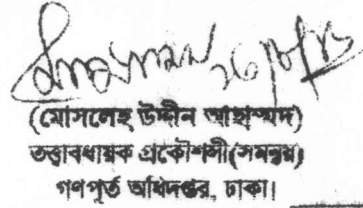 ২৬/৮/১৩
(মোসলেহ উদ্দীন আহাম্মদ)
তত্ত্বাবধায়ক প্রকৌশলী(সমন্বয়)
গণপূর্ত অধিদপ্তর, ঢাকা।